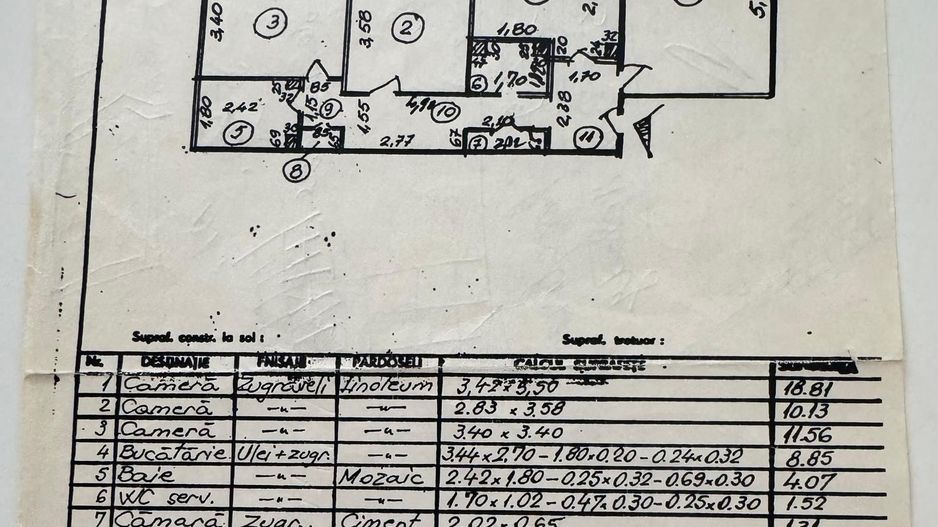 3,40
3
3,58
2
1,80
20
32
5,
1,80
2,42
5
25
32
85
1,15
9
85
1,55
10
2,77
67
6
30
1,70
1,70
2,38
7
11
69
30
8
Supraf. constr. la sol : Supraf. trotuar :
Nr. DESTINAȚIE FINISAJE PARDOSELI CALCUL SUPRAFEȚE
1 Cameră Zugrăveli Linoleum 3,42 x 5,50 18.81
2 Cameră —〃— —〃— 2.83 x 3.58 10.13
3 Cameră —〃— —〃— 3.40 x 3.40 11.56
4 Bucătărie Ulei+zugr. —〃— 3.44 x 2.70 - 1.80 x 0.20 - 0.24 x 0.32 8.85
5 Baie —〃— Mozaic 2.42 x 1.80 - 0.25 x 0.32 - 0.69 x 0.30 4.07
6 WC serv. —〃— —〃— 1.70 x 1.02 - 0.47 x 0.30 - 0.25 x 0.30 1.52
7 Cămară Zugr. Ciment 2.02 x 0.65 1.31